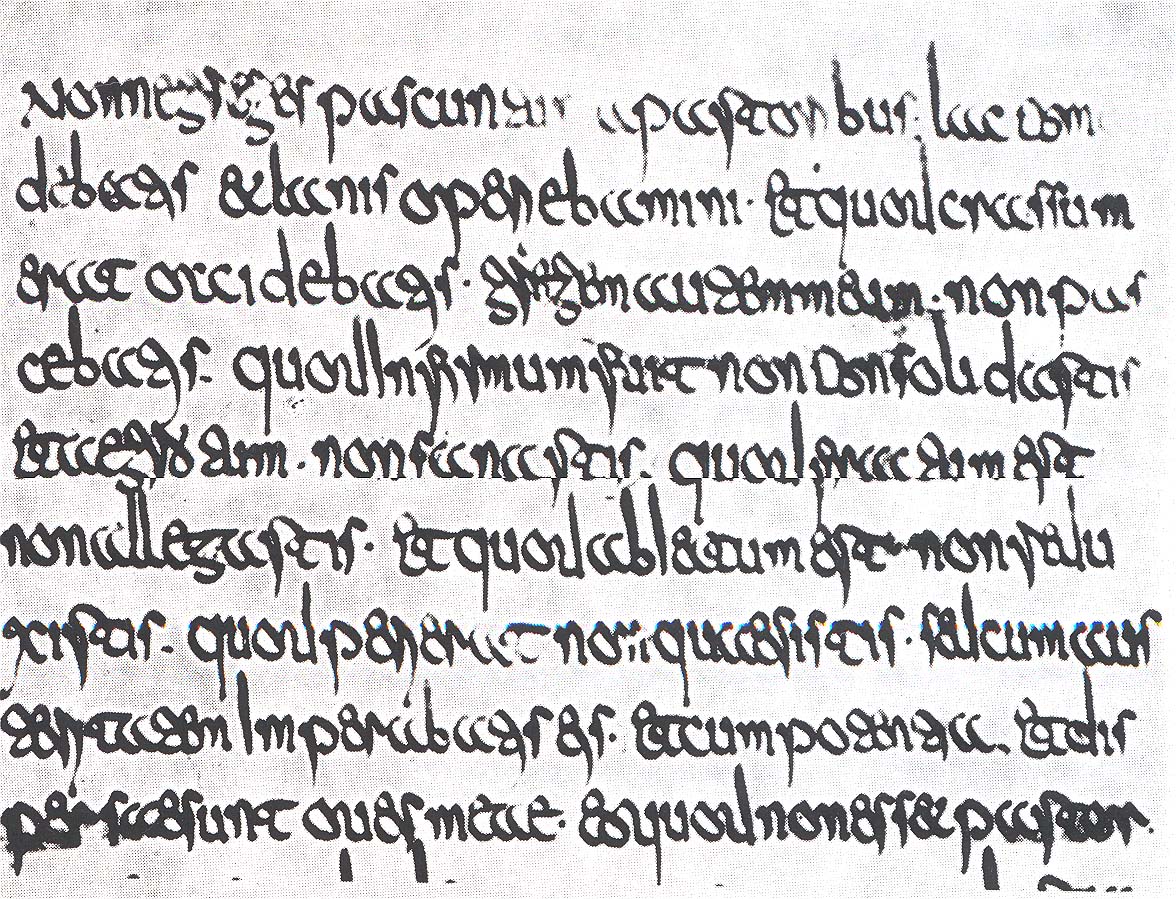 Nonne greges pascuntur a pastoribus. lac com
debatis et lanis operiebamini. et quod crassum
erat occidebatis. gregem autem meum. non pas
cebatis. quod infirmum fuit non consolidastis
et aegrotum. non sanastis. quod fractum est
non alligastis. et quod abiectum est non redu
xistis. quod perierat non quaesistis. sed cum aus
teritatem imperabatis eis. et cum potentia. et dis
persae sunt oues meae. eo quod non esset pastor.